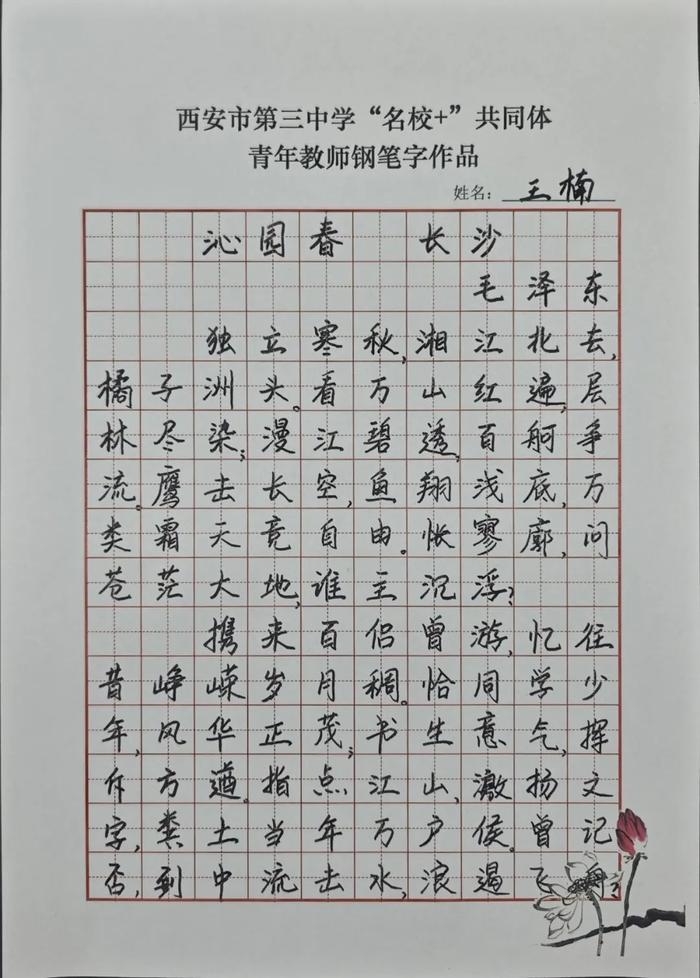 西安市第三中学“名校+”共同体
青年教师钢笔字作品
姓名：王楠
沁园春 长沙
毛泽东
独立寒秋,湘江北去,
橘子洲头。看万山红遍,层
林尽染;漫江碧透,百舸争
流。鹰击长空,鱼翔浅底,万
类霜天竞自由。怅寥廓,问
苍茫大地,谁主沉浮?
携来百侣曾游,忆往
昔峥嵘岁月稠。恰同学少
年,风华正茂;书生意气,挥
斥方遒。指点江山,激扬文
字,粪土当年万户侯。曾记
否,到中流击水,浪遏飞舟?